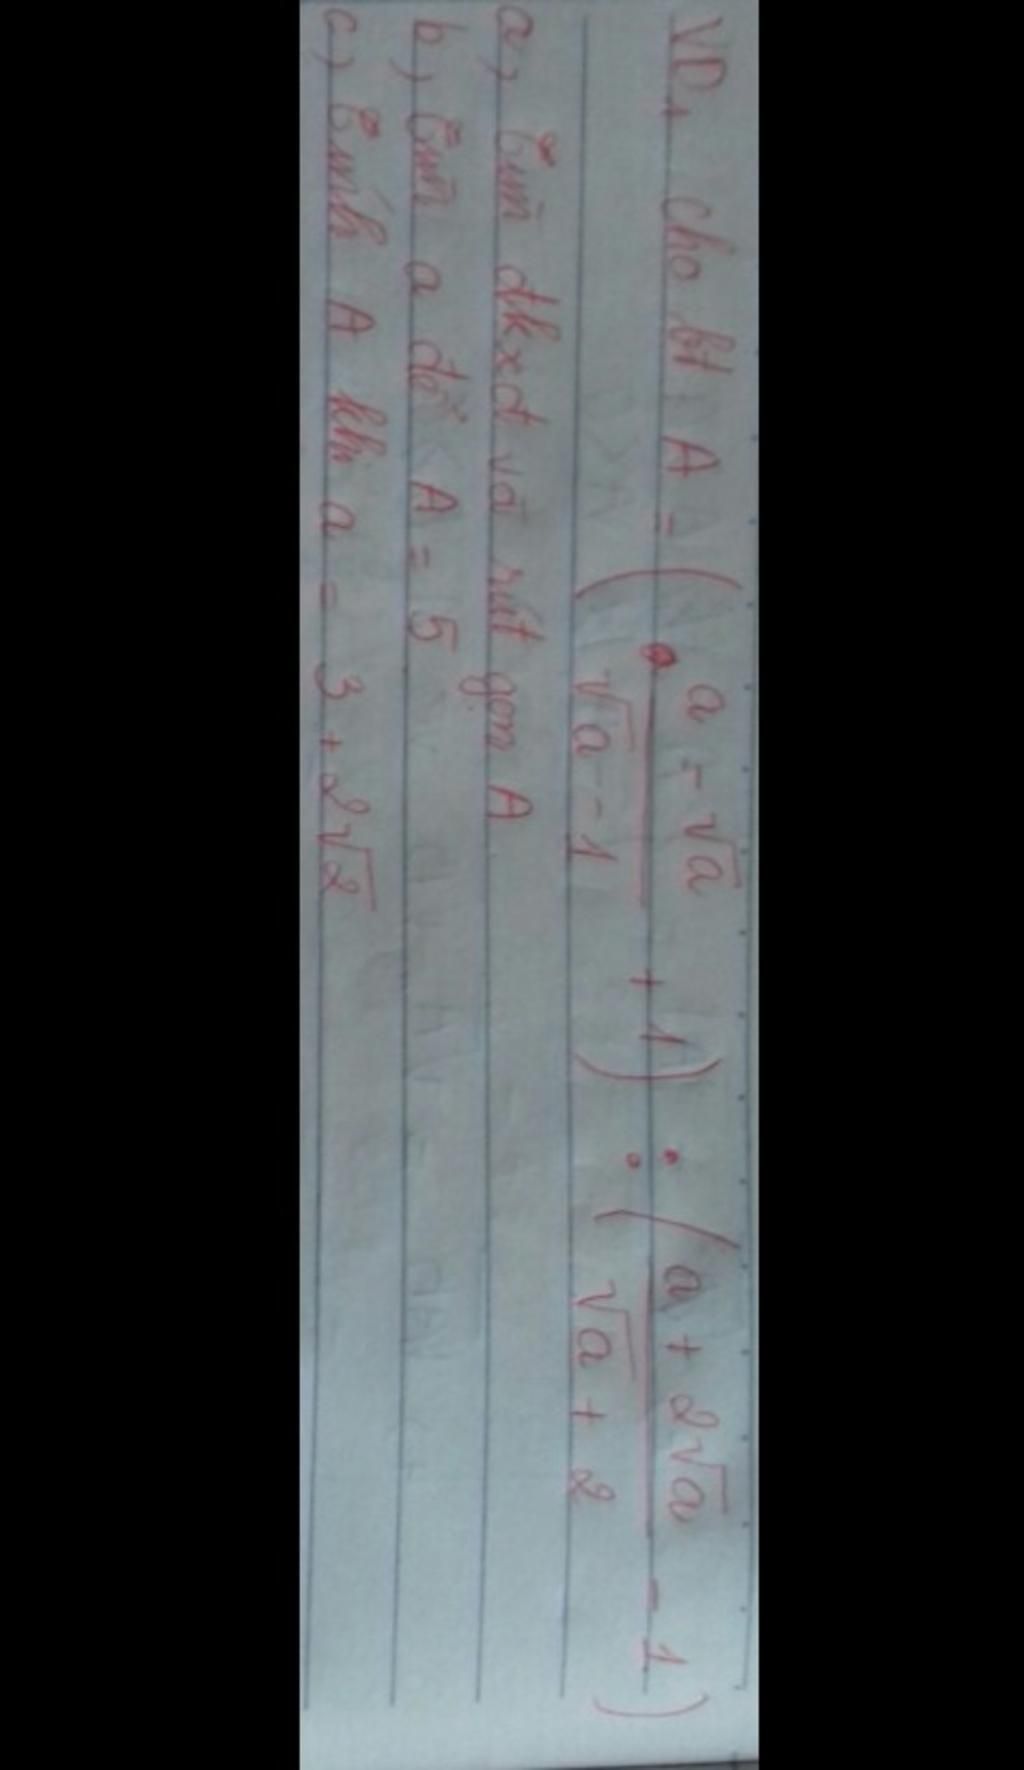 VD1 cho bt A = ( a - √a / √a - 1 + 1 ) : ( a + 2√a / √a + 2 - 1 )
a, tìm đkxđ và rút gọn A
b, tìm a để A = 5
c, tính A khi a = 3 + 2√2